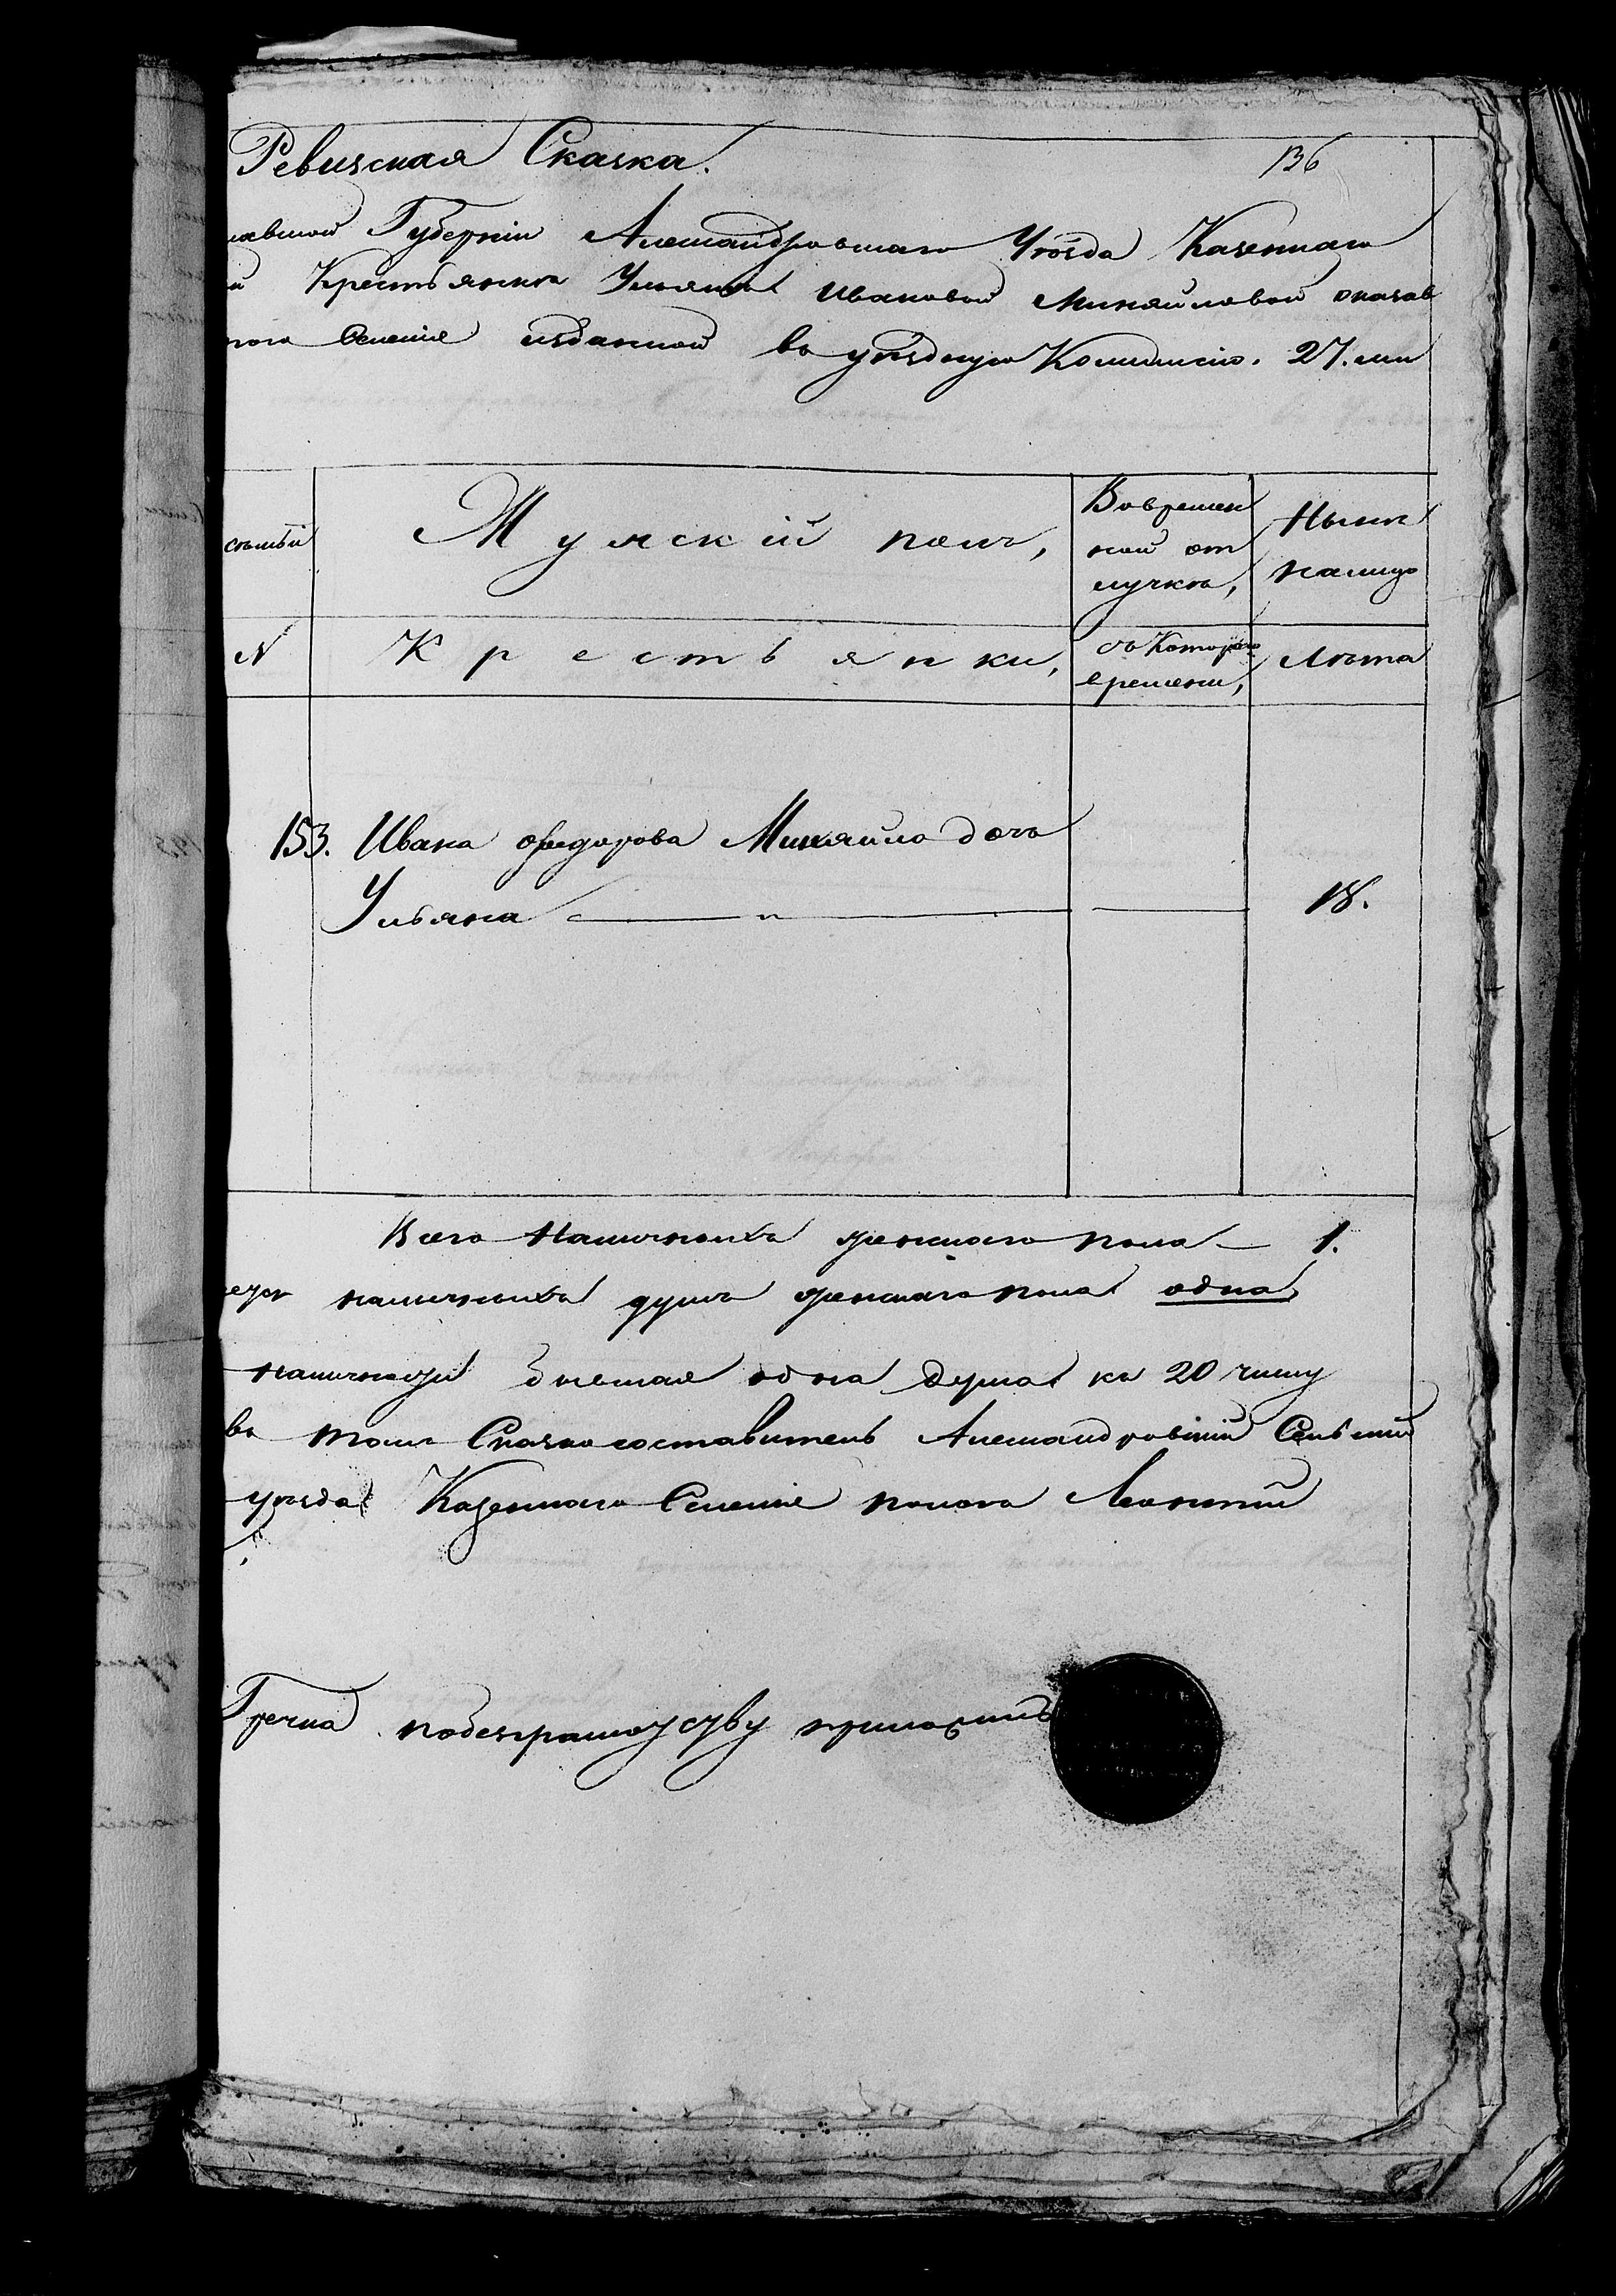 Ревизская Сказка.
136
лавской Губернiи Александровскаго Уѣзда Казеннаго
Крестьянкѣ Ульянѣ Ивановой Михайловой оказав
Селенiя изданной въ уѣздную Коммисiю. 27. мы
семьи
Мужскiй полъ,
Во времен
ной от
лучкѣ,
Нынѣ
налицо
N
Крестьянки,
съ Котораго
времени,
Лѣта
153. Ивана Федорова Михайло дочь
Ульяна — " — — 18.
Всего Наличныхъ женскаго пола — 1.
наличныхъ душъ женскаго пола одна
наличности бывшая одна душа къ 20 числу
въ томъ Сказкосоставитель Александровскiй Сельскiй
уѣзда Казеннаго Селенiя
Гречка побезграмотству приложилъ